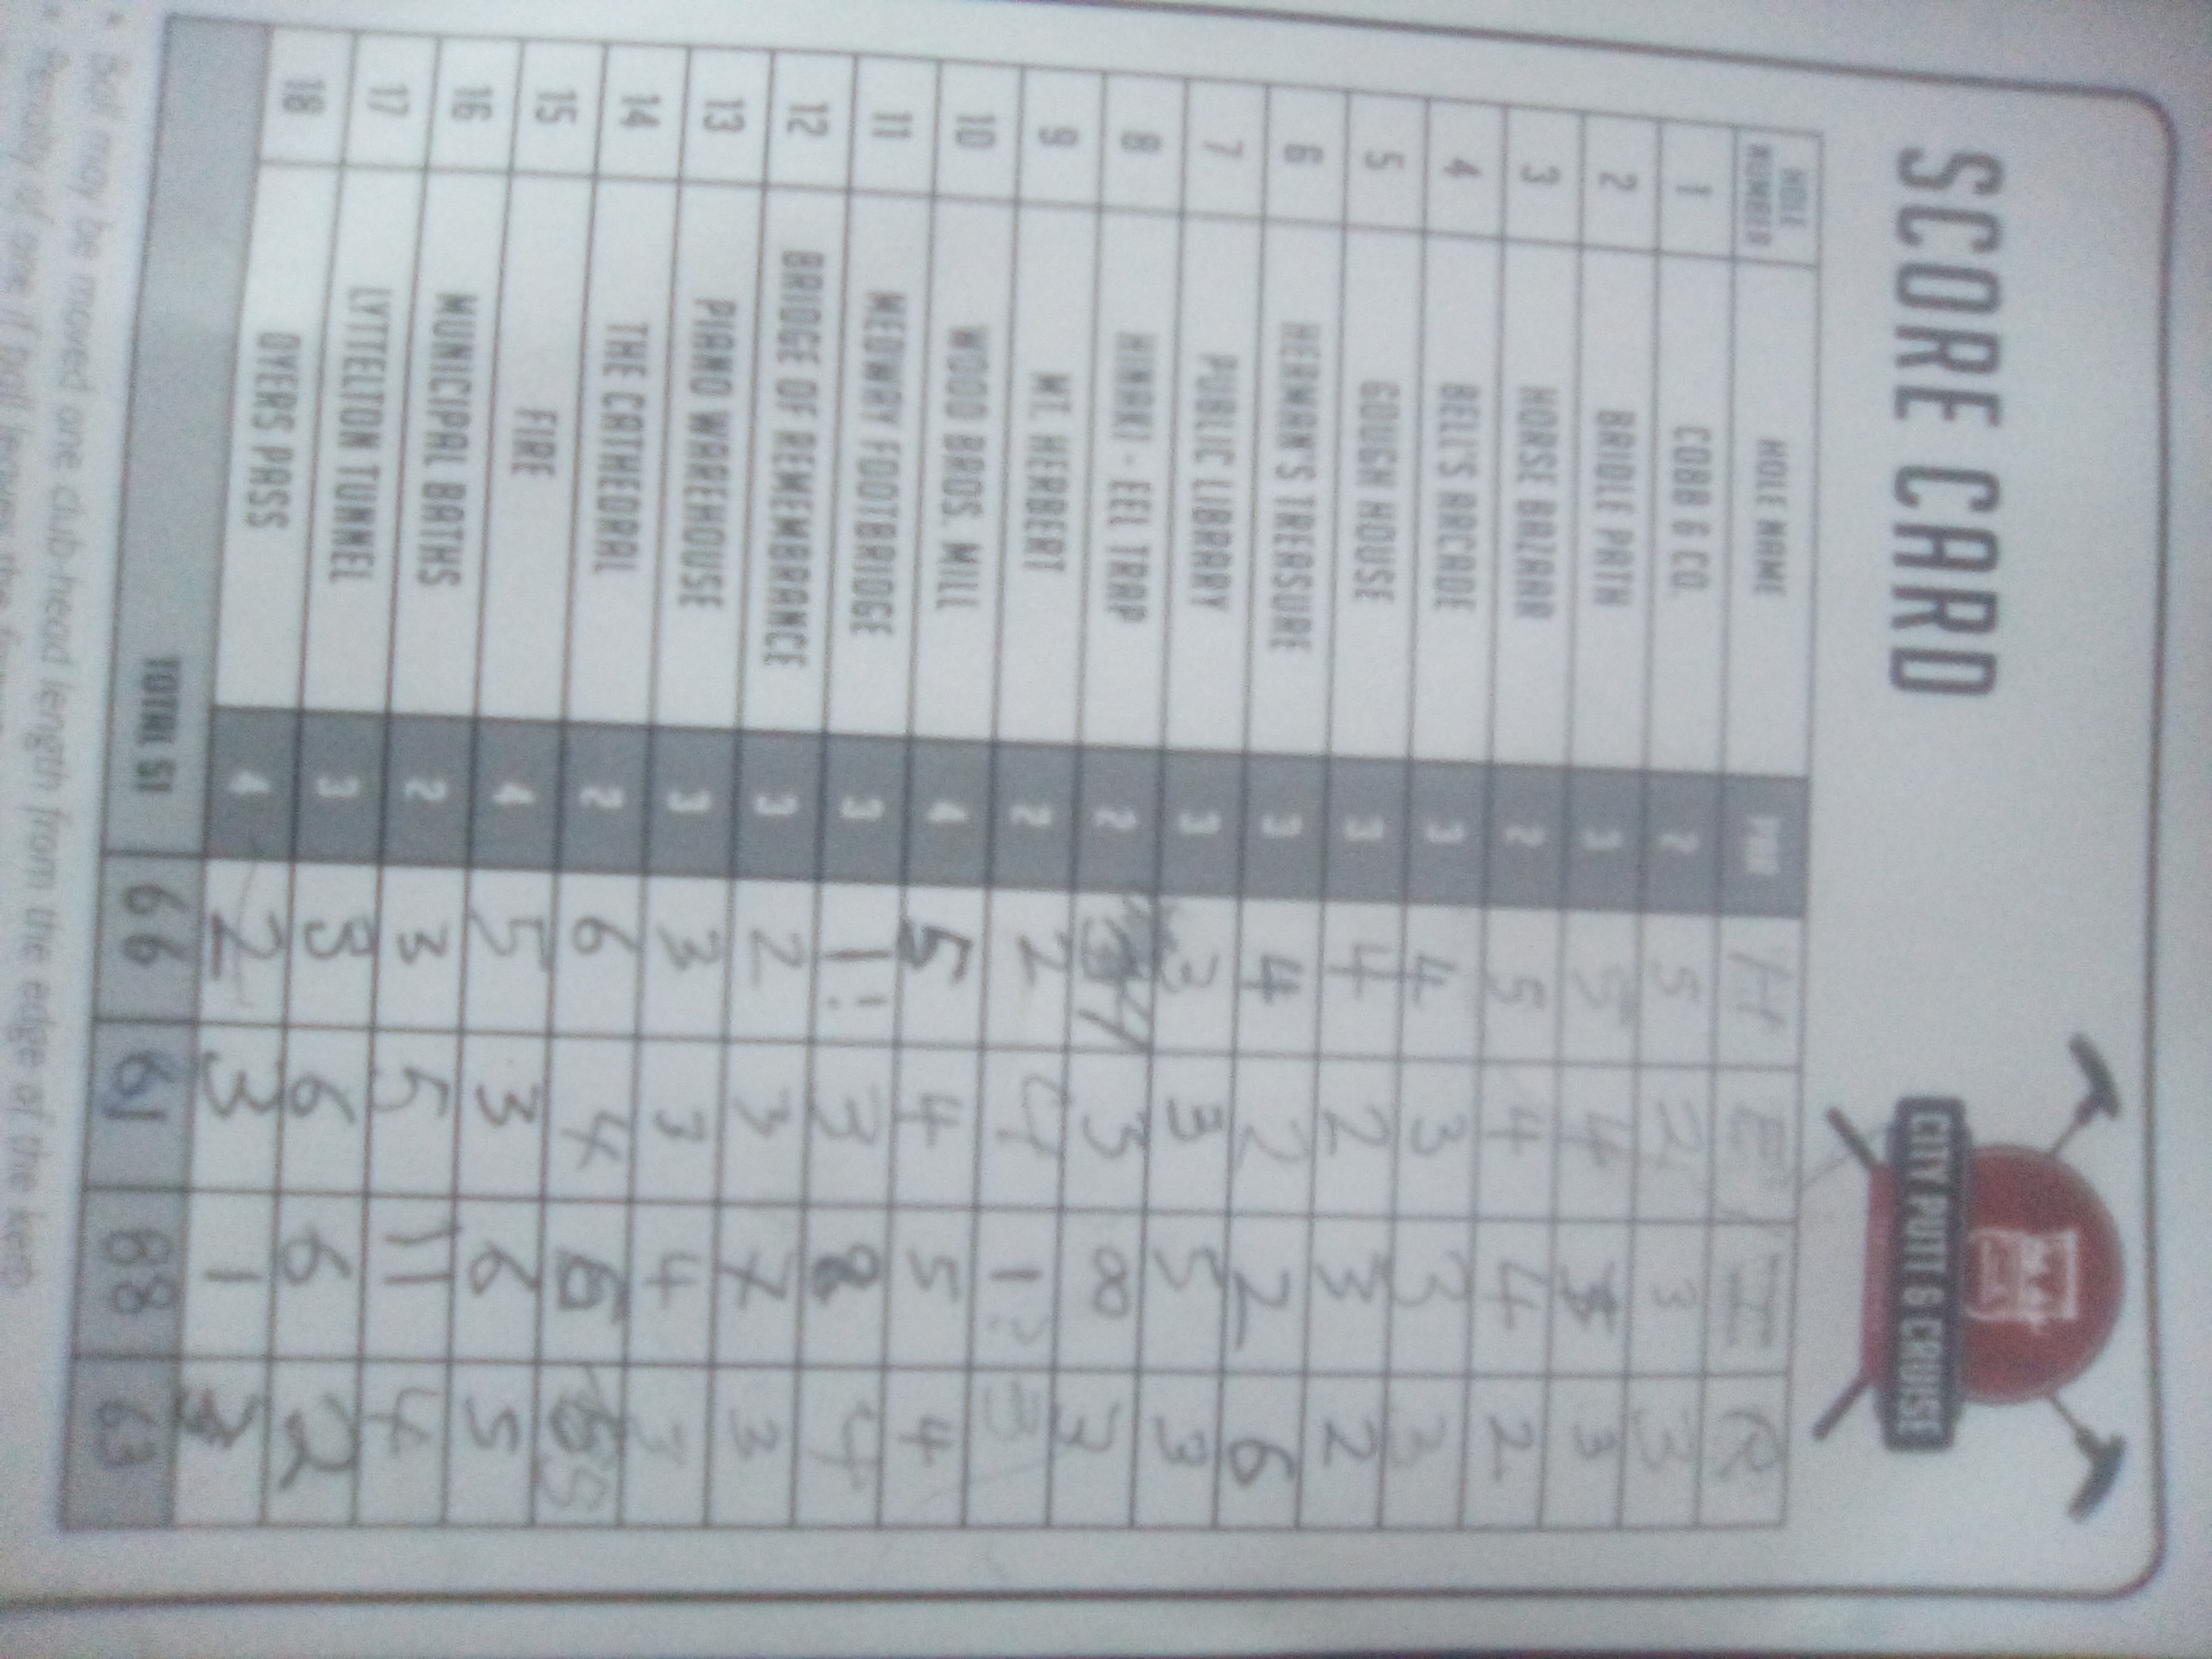 SCORE CARD
CITY PUTT & CRUISE
HOLE NUMBER HOLE NAME PAR H E I R
1 COBB & CO. 2 5 2 3 3
2 BRIDLE PATH 3 5 4 3
3 HORSE BAZAAR 2 5 4 4 2
4 BELL'S ARCADE 3 4 3 3 3
5 GOUGH HOUSE 3 4 2 3 2
6 HERMAN'S TREASURE 3 4 2 2 6
7 PUBLIC LIBRARY 3 3 3 5 3
8 HINAKI - EEL TRAP 2 4 3 8 3
9 MT. HERBERT 2 2 4 1!? 3
10 WOOD BROS. MILL 4 5 4 5 4
11 MEDWAY FOOTBRIDGE 3 1! 3 8 4
12 BRIDGE OF REMEMBRANCE 3 2 3 7 3
13 PIANO WAREHOUSE 3 3 3 4 3
14 THE CATHEDRAL 2 6 4 6 5
15 FIRE 4 5 3 6 5
16 MUNICIPAL BATHS 2 3 5 11 4
17 LYTTELTON TUNNEL 3 6 6 2
18 DYERS PASS 4 2 3 1
TOTAL 51 66 61 88 63
• Ball may be moved one club-head length from the edge of the kerb
• Penalty of one if ball leaves the